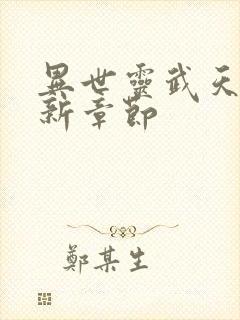 異世靈武天
新章節
鄭某生